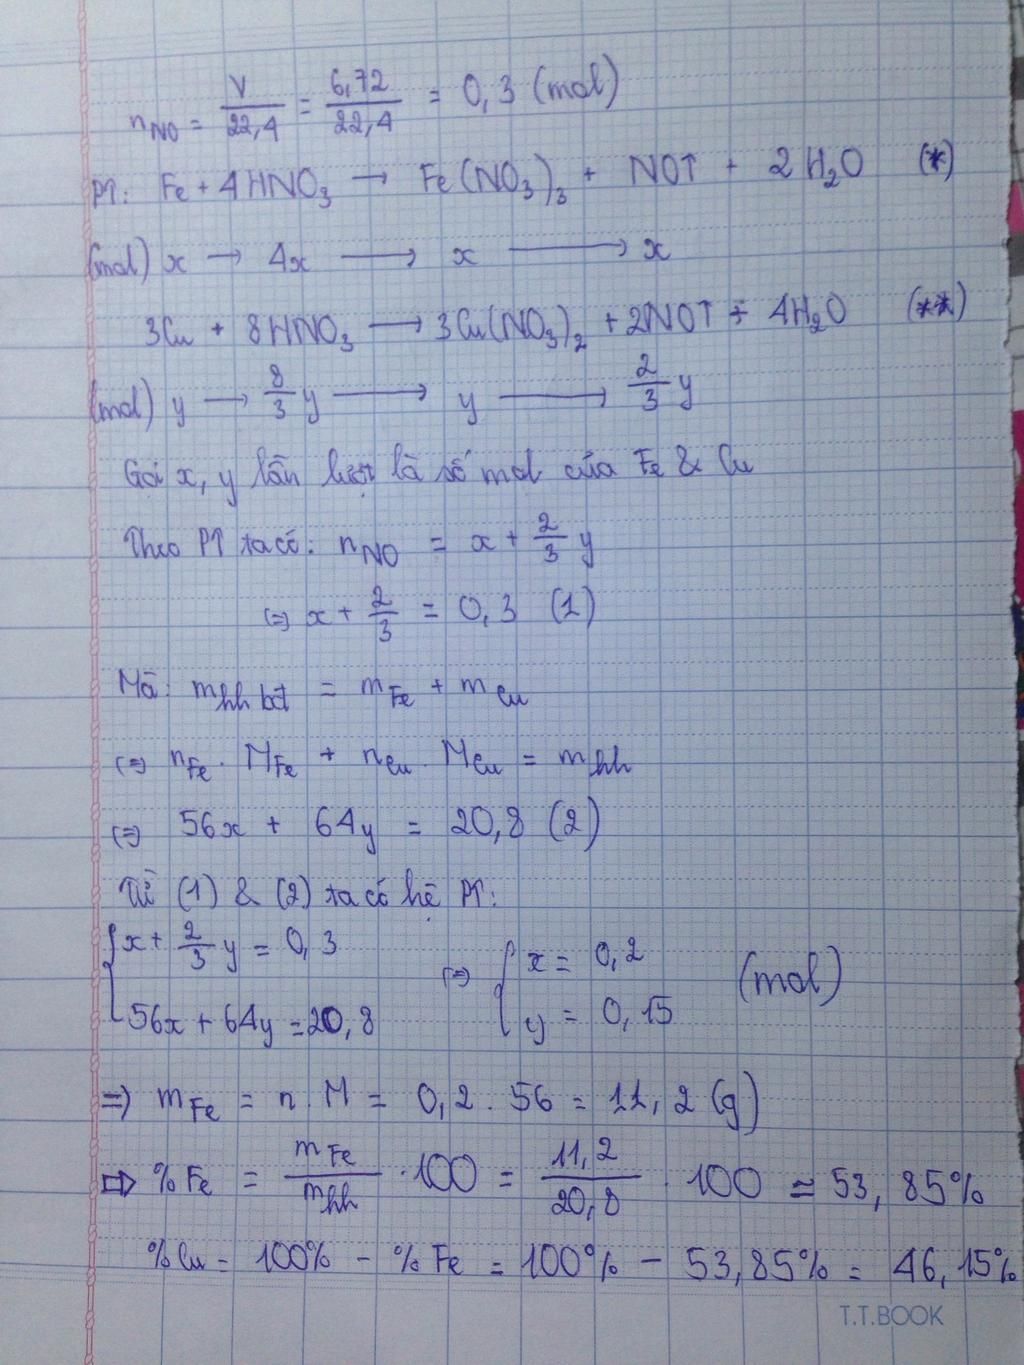 n_NO = V/22,4 = 6,72/22,4 = 0,3 (mol)
PT: Fe + 4HNO₃ → Fe(NO₃)₃ + NO↑ + 2H₂O (*)
(mol) x → 4x → x → x
3Cu + 8HNO₃ → 3Cu(NO₃)₂ + 2NO↑ + 4H₂O (**)
(mol) y → 8/3 y → y → 2/3 y
Gọi x, y lần lượt là số mol của Fe & Cu
Theo PT ta có: n_NO = x + 2/3 y
⇔ x + 2/3 = 0,3 (1)
Mà: m_hh bđ = m_Fe + m_Cu
⇔ n_Fe . M_Fe + n_Cu . M_Cu = m_hh
⇔ 56x + 64y = 20,8 (2)
Từ (1) & (2) ta có hệ PT:
{ x + 2/3 y = 0,3 ⇔ { x = 0,2 (mol)
56x + 64y = 20,8 y = 0,15
⇒ m_Fe = n . M = 0,2 . 56 = 11,2 (g)
⇒ %Fe = m_Fe/m_hh . 100 = 11,2/20,8 . 100 ≃ 53,85%
%Cu = 100% - %Fe = 100% - 53,85% = 46,15%
T.T.BOOK